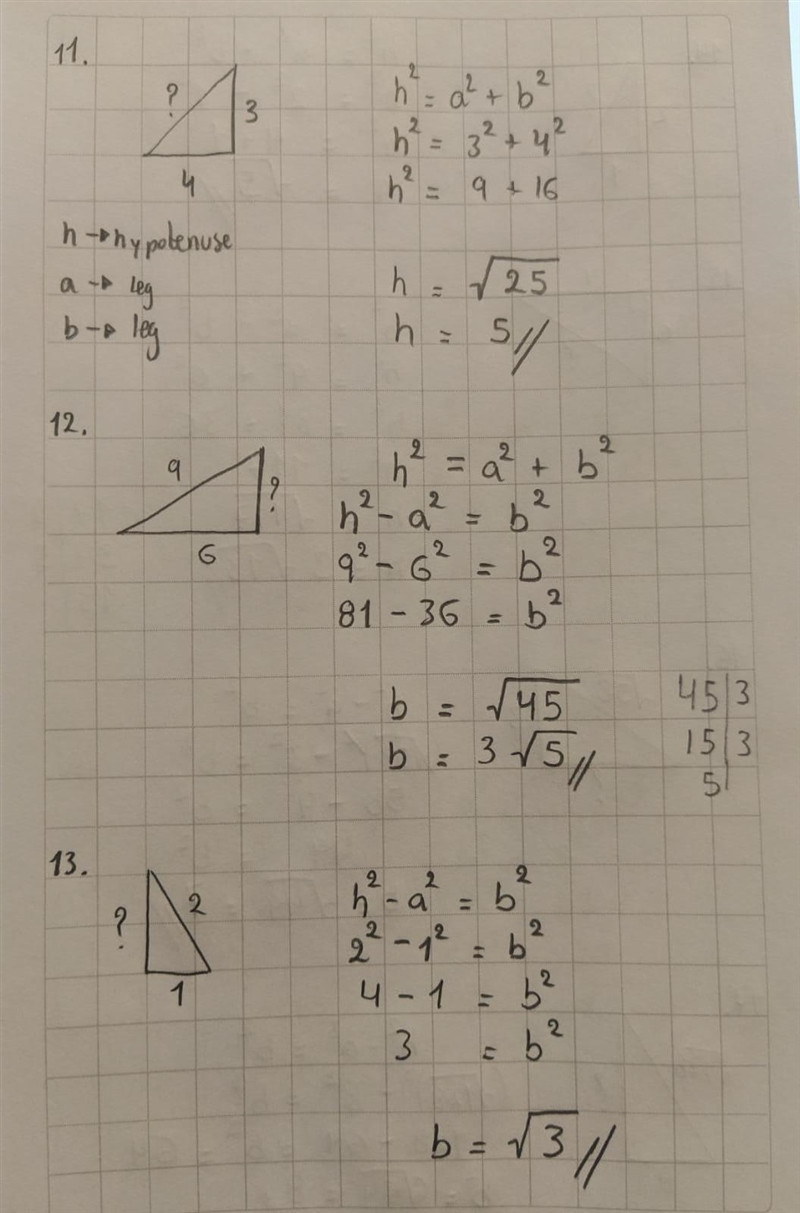 11.
? 3
4
h² = a² + b²
h² = 3² + 4²
h² = 9 + 16
h → hypotenuse
a → leg
b → leg
h = √25
h = 5//
12.
9 ?
6
h² = a² + b²
h² - a² = b²
9² - 6² = b²
81 - 36 = b²
b = √45
b = 3√5//
45|3
15|3
5|
13.
? 2
1
h² - a² = b²
2² - 1² = b²
4 - 1 = b²
3 = b²
b = √3//